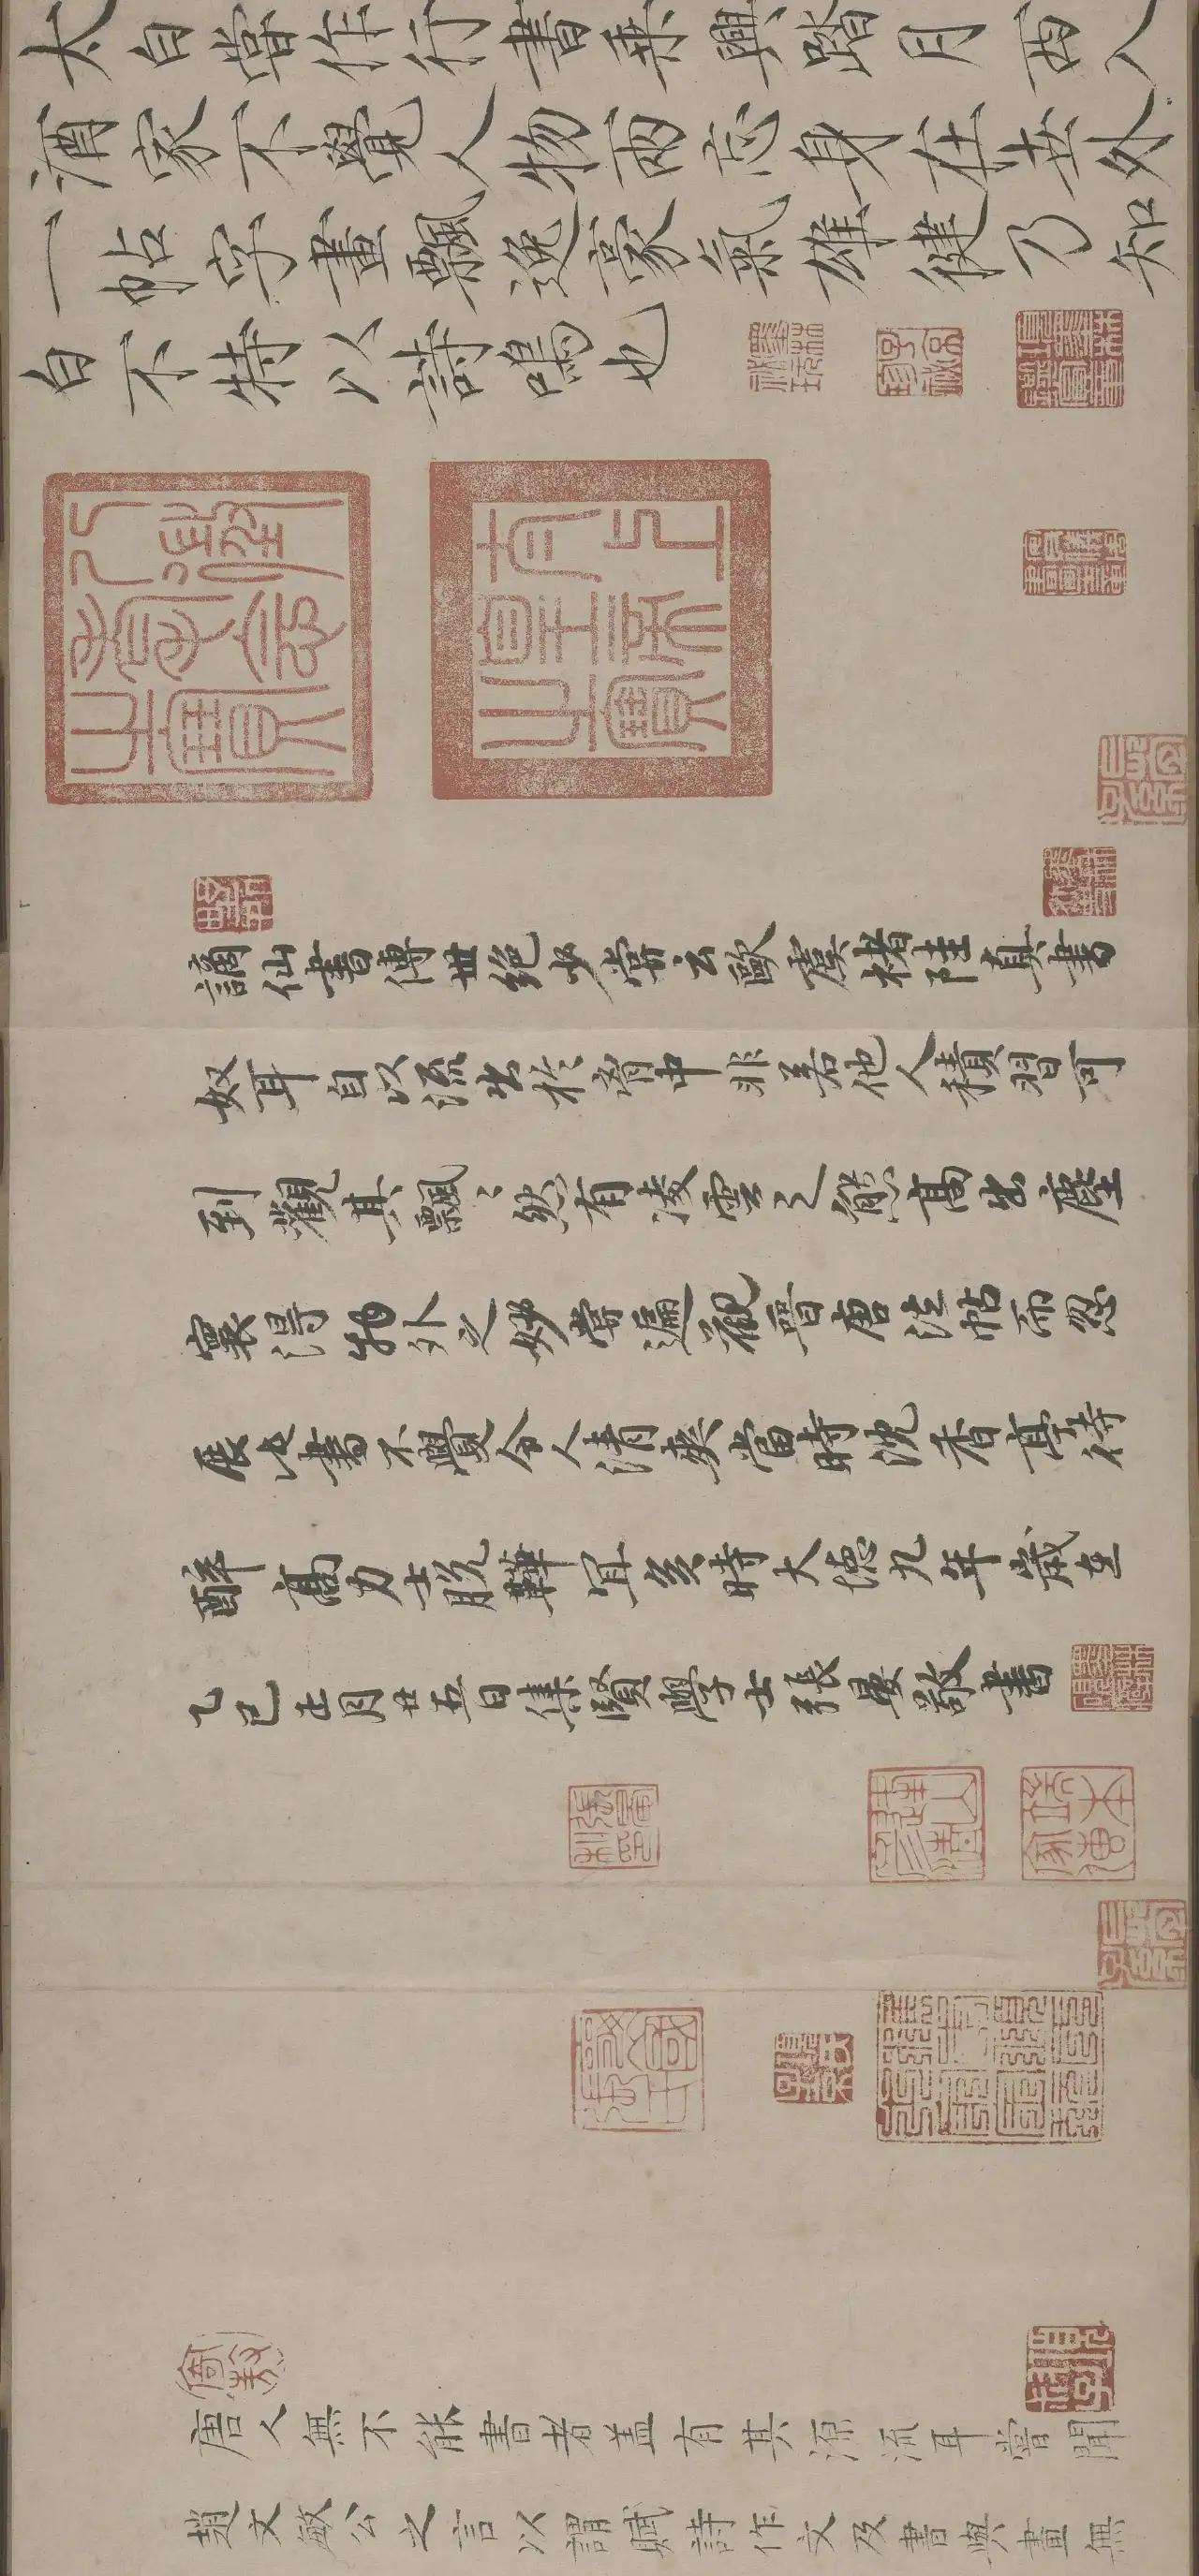 太白嘗作行書乘興踏月西入
酒家不覺人物兩忘身在世外
一帖字畫飄逸豪氣雄健乃知
白不特以詩鳴也
八徵耄念之寶
太上皇帝之寶
謫仙書傳世絕少嘗云歐虞褚陸真書
奴耳自以流出於胷中非若他人積習可
到觀其飄〻然有凌雲之態高出塵
寰得物外之妙嘗遍觀晉唐法帖而忽
展此書不覺令人清爽當時沈香亭待
醉高力士脫鞾宜矣時大德九年歲在
乙巳正月廿五日集賢學士張晏敬書
唐人無不能書者蓋有其源流耳嘗聞
趙文敏公之言以謂賦詩作文及書與畫無